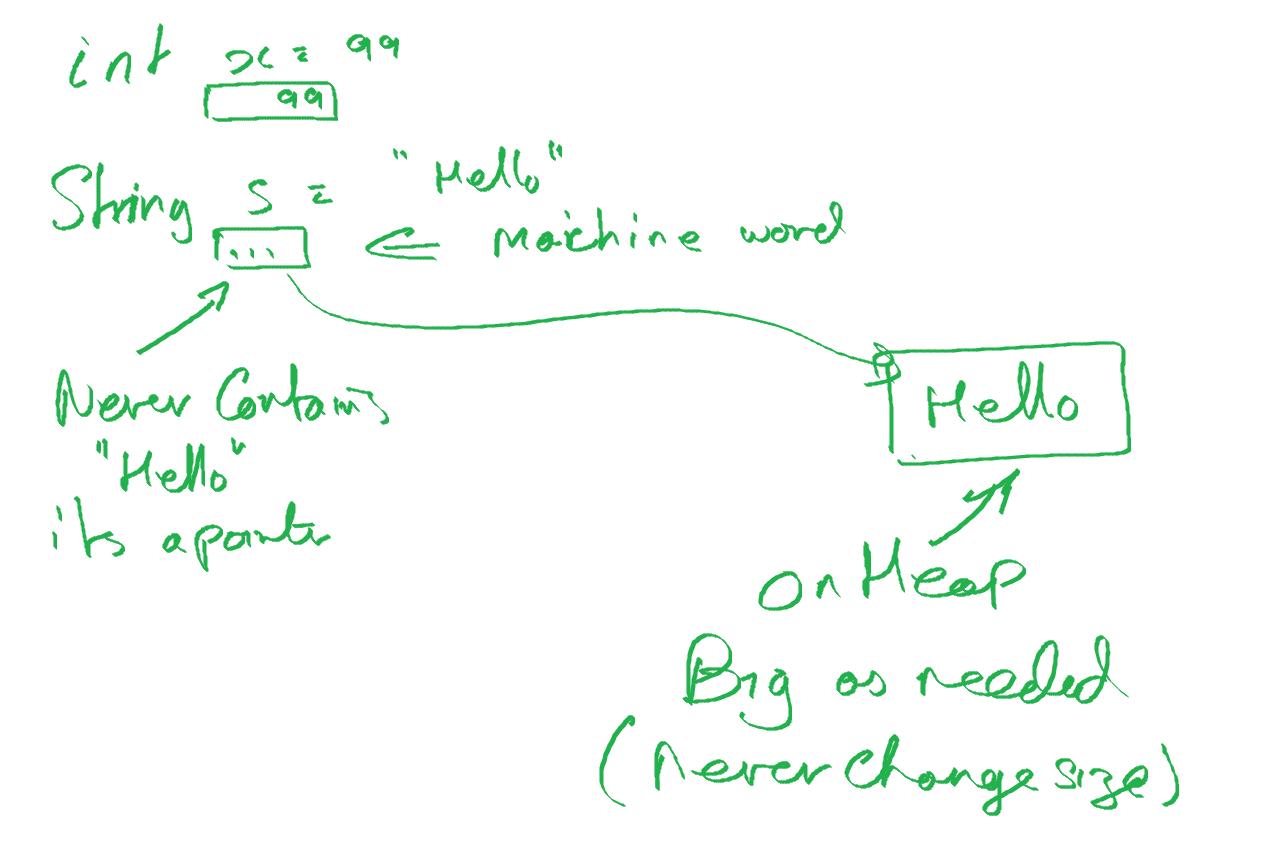 int x = 99
99
String s = "Hello"
... ⇐ Machine word
Never Contains
"Hello"
its a pointr
Hello
on Heap
Big as needed
(Never change size)